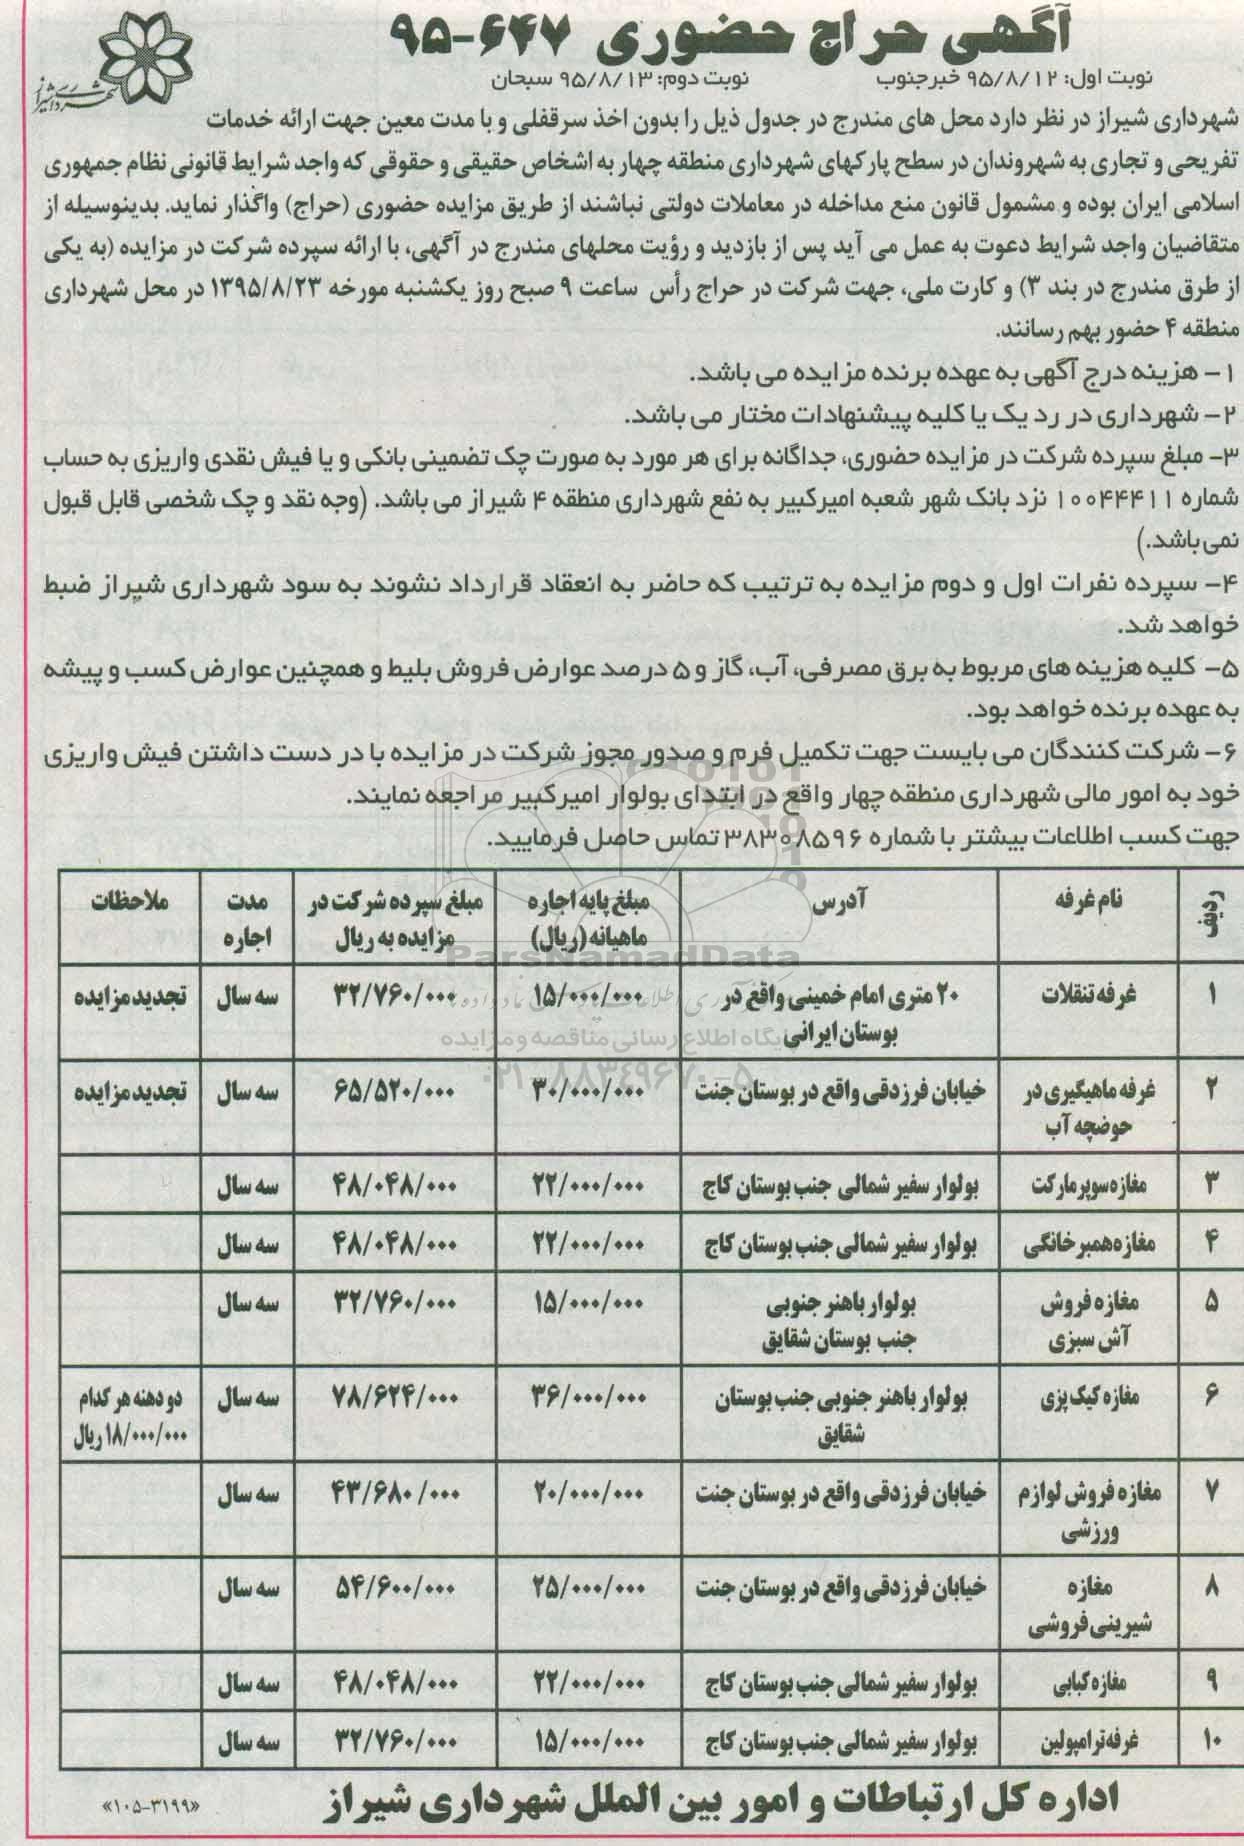 آگهی حراج حضوری ۶۴۷-۹۵
نوبت اول: ۹۵/۸/۱۲ خبرجنوب نوبت دوم: ۹۵/۸/۱۳ سبحان
شهرداری شیراز
شهرداری شیراز در نظر دارد محل های مندرج در جدول ذیل را بدون اخذ سرقفلی و با مدت معین جهت ارائه خدمات
تفریحی و تجاری به شهروندان در سطح پارکهای شهرداری منطقه چهار به اشخاص حقیقی و حقوقی که واجد شرایط قانونی نظام جمهوری
اسلامی ایران بوده و مشمول قانون منع مداخله در معاملات دولتی نباشند از طریق مزایده حضوری (حراج) واگذار نماید. بدینوسیله از
متقاضیان واجد شرایط دعوت به عمل می آید پس از بازدید و رؤیت محلهای مندرج در آگهی، با ارائه سپرده شرکت در مزایده (به یکی
از طرق مندرج در بند ۳) و کارت ملی، جهت شرکت در حراج رأس ساعت ۹ صبح روز یکشنبه مورخه ۱۳۹۵/۸/۲۳ در محل شهرداری
منطقه ۴ حضور بهم رسانند.
۱- هزینه درج آگهی به عهده برنده مزایده می باشد.
۲- شهرداری در رد یک یا کلیه پیشنهادات مختار می باشد.
۳- مبلغ سپرده شرکت در مزایده حضوری، جداگانه برای هر مورد به صورت چک تضمینی بانکی و یا فیش نقدی واریزی به حساب
شماره ۱۰۰۴۴۴۱۱ نزد بانک شهر شعبه امیرکبیر به نفع شهرداری منطقه ۴ شیراز می باشد. (وجه نقد و چک شخصی قابل قبول
نمی باشد.)
۴- سپرده نفرات اول و دوم مزایده به ترتیب که حاضر به انعقاد قرارداد نشوند به سود شهرداری شیراز ضبط
خواهد شد.
۵- کلیه هزینه های مربوط به برق مصرفی، آب، گاز و ۵ درصد عوارض فروش بلیط و همچنین عوارض کسب و پیشه
به عهده برنده خواهد بود.
۶- شرکت کنندگان می بایست جهت تکمیل فرم و صدور مجوز شرکت در مزایده با در دست داشتن فیش واریزی
خود به امور مالی شهرداری منطقه چهار واقع در ابتدای بولوار امیرکبیر مراجعه نمایند.
جهت کسب اطلاعات بیشتر با شماره ۳۸۳۰۸۵۹۶ تماس حاصل فرمایید.
ردیف | نام غرفه | آدرس | مبلغ پایه اجاره ماهیانه (ریال) | مبلغ سپرده شرکت در مزایده به ریال | مدت اجاره | ملاحظات
۱ | غرفه تنقلات | ۲۰ متری امام خمینی واقع در بوستان ایرانی | ۱۵/۰۰۰/۰۰۰ | ۳۲/۷۶۰/۰۰۰ | سه سال | تجدید مزایده
۲ | غرفه ماهیگیری در حوضچه آب | خیابان فرزدقی واقع در بوستان جنت | ۳۰/۰۰۰/۰۰۰ | ۶۵/۵۲۰/۰۰۰ | سه سال | تجدید مزایده
۳ | مغازه سوپر مارکت | بولوار سفیر شمالی جنب بوستان کاج | ۲۲/۰۰۰/۰۰۰ | ۴۸/۰۴۸/۰۰۰ | سه سال
۴ | مغازه همبر خانگی | بولوار سفیر شمالی جنب بوستان کاج | ۲۲/۰۰۰/۰۰۰ | ۴۸/۰۴۸/۰۰۰ | سه سال
۵ | مغازه فروش آش سبزی | بولوار باهنر جنوبی جنب بوستان شقایق | ۱۵/۰۰۰/۰۰۰ | ۳۲/۷۶۰/۰۰۰ | سه سال
۶ | مغازه کیک پزی | بولوار باهنر جنوبی جنب بوستان شقایق | ۳۶/۰۰۰/۰۰۰ | ۷۸/۶۲۴/۰۰۰ | سه سال | دو دهنه هر کدام ۱۸/۰۰۰/۰۰۰ ریال
۷ | مغازه فروش لوازم ورزشی | خیابان فرزدقی واقع در بوستان جنت | ۲۰/۰۰۰/۰۰۰ | ۴۳/۶۸۰/۰۰۰ | سه سال
۸ | مغازه شیرینی فروشی | خیابان فرزدقی واقع در بوستان جنت | ۲۵/۰۰۰/۰۰۰ | ۵۴/۶۰۰/۰۰۰ | سه سال
۹ | مغازه کبابی | بولوار سفیر شمالی جنب بوستان کاج | ۲۲/۰۰۰/۰۰۰ | ۴۸/۰۴۸/۰۰۰ | سه سال
۱۰ | غرفه ترامپولین | بولوار سفیر شمالی جنب بوستان کاج | ۱۵/۰۰۰/۰۰۰ | ۳۲/۷۶۰/۰۰۰ | سه سال
ParsNamadData
پایگاه اطلاع رسانی مناقصه و مزایده
۰۲۱-۸۸۳۴۹۶۷۰-۵
اداره کل ارتباطات و امور بین الملل شهرداری شیراز
«۱۰۵-۳۱۹۹»